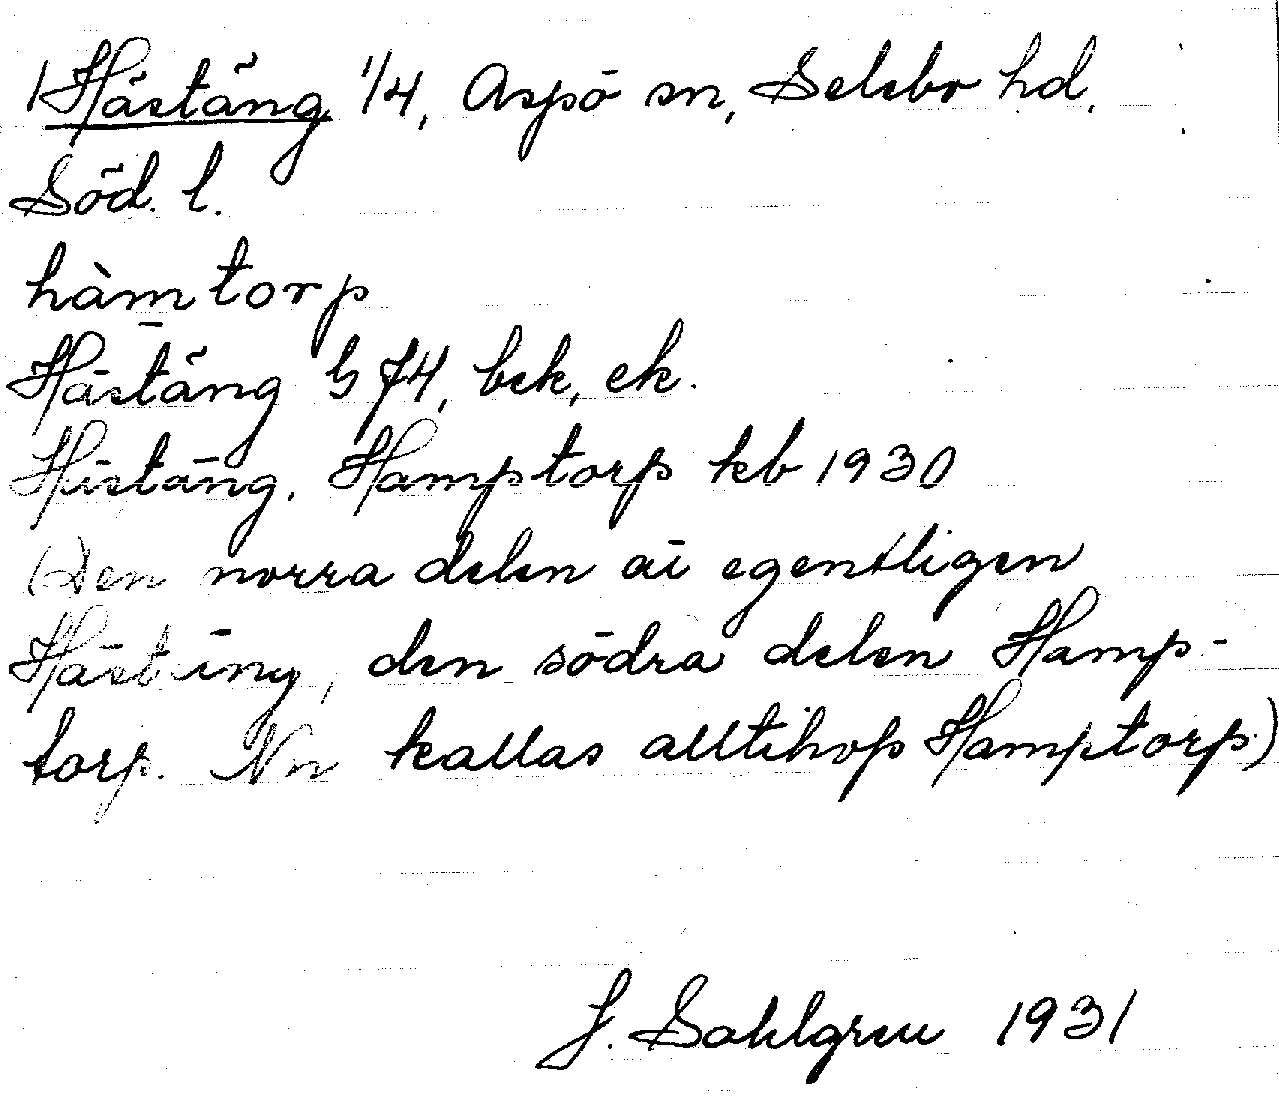 1 Hästäng 1/4, Aspö sn, Selebo hd,
Söd. l.
hàmtorp
Hästäng G 74, bek, ek.
Hästäng, Hamptorp kb 1930
(Den norra delen är egentligen
Hästäng, den södra delen Hamp-
torp. Nu kallas alltihop Hamptorp)
J. Sahlgren 1931